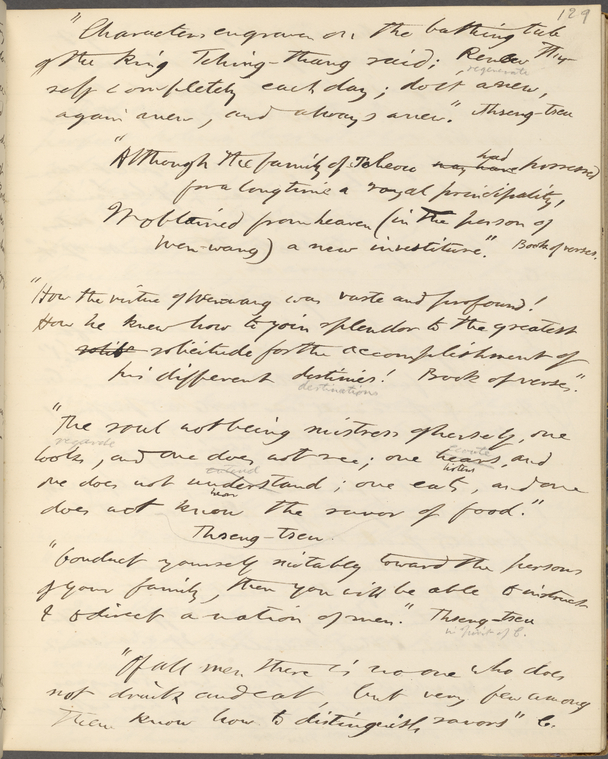 129
"Characters engraven on the bathing tub
of the king Tching-thang said: Renew Thy-
regenerate
self completely each day; do it anew,
again anew, and always anew." Thseng-tseu
"Although the family of Tcheou may have had possessed
for a long time a royal principality,
It obtained from heaven (in the person of
Wen-wang) a new investiture." Book of verses.
"How the virtue of Wen-wang was vaste and profound!
How he knew how to join splendor to the greatest
solicitude for the accomplishment of
his different destinies! Book of verses".
destinations
"The soul not being mistress of herself, one
regarde ecoute
looks, and one does not see; one hears, and
entend listens
one does not understand; one eats, and one
hear
does not know the savor of food."
Thseng-tseu.
"Conduct yourself suitably toward the persons
of your family, then you will be able to instruct
& to direct a nation of men." Thseng-tseu
in spirit of C.
"Of all men there is no one who does
not drink and eat, but very few among
them know how to distinguish savors" C.